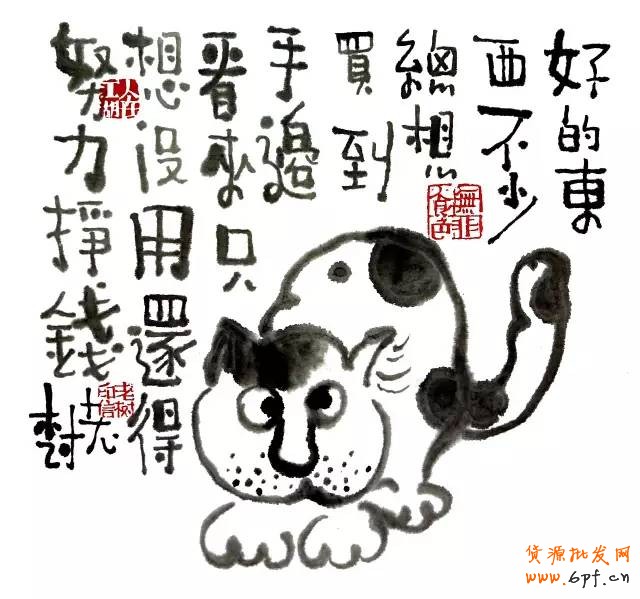 好的東
西不少
總想
買到
手邊
看來只
想没用還得
努力掙錢
老樹
無非食色
人在江湖
货源批发网
www.6pf.cn